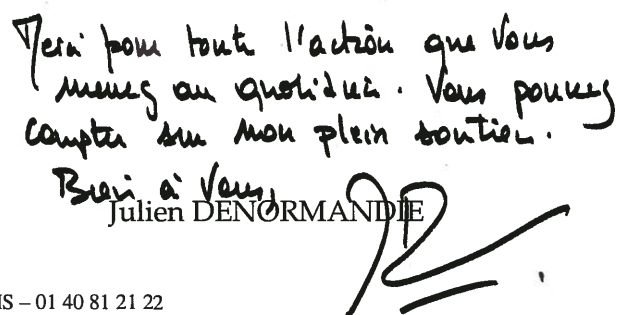 Merci pour toute l'action que vous
menez au quotidien. Vous pouvez
compter sur mon plein soutien.
Bien à vous,
Julien DENORMANDIE
IS – 01 40 81 21 22